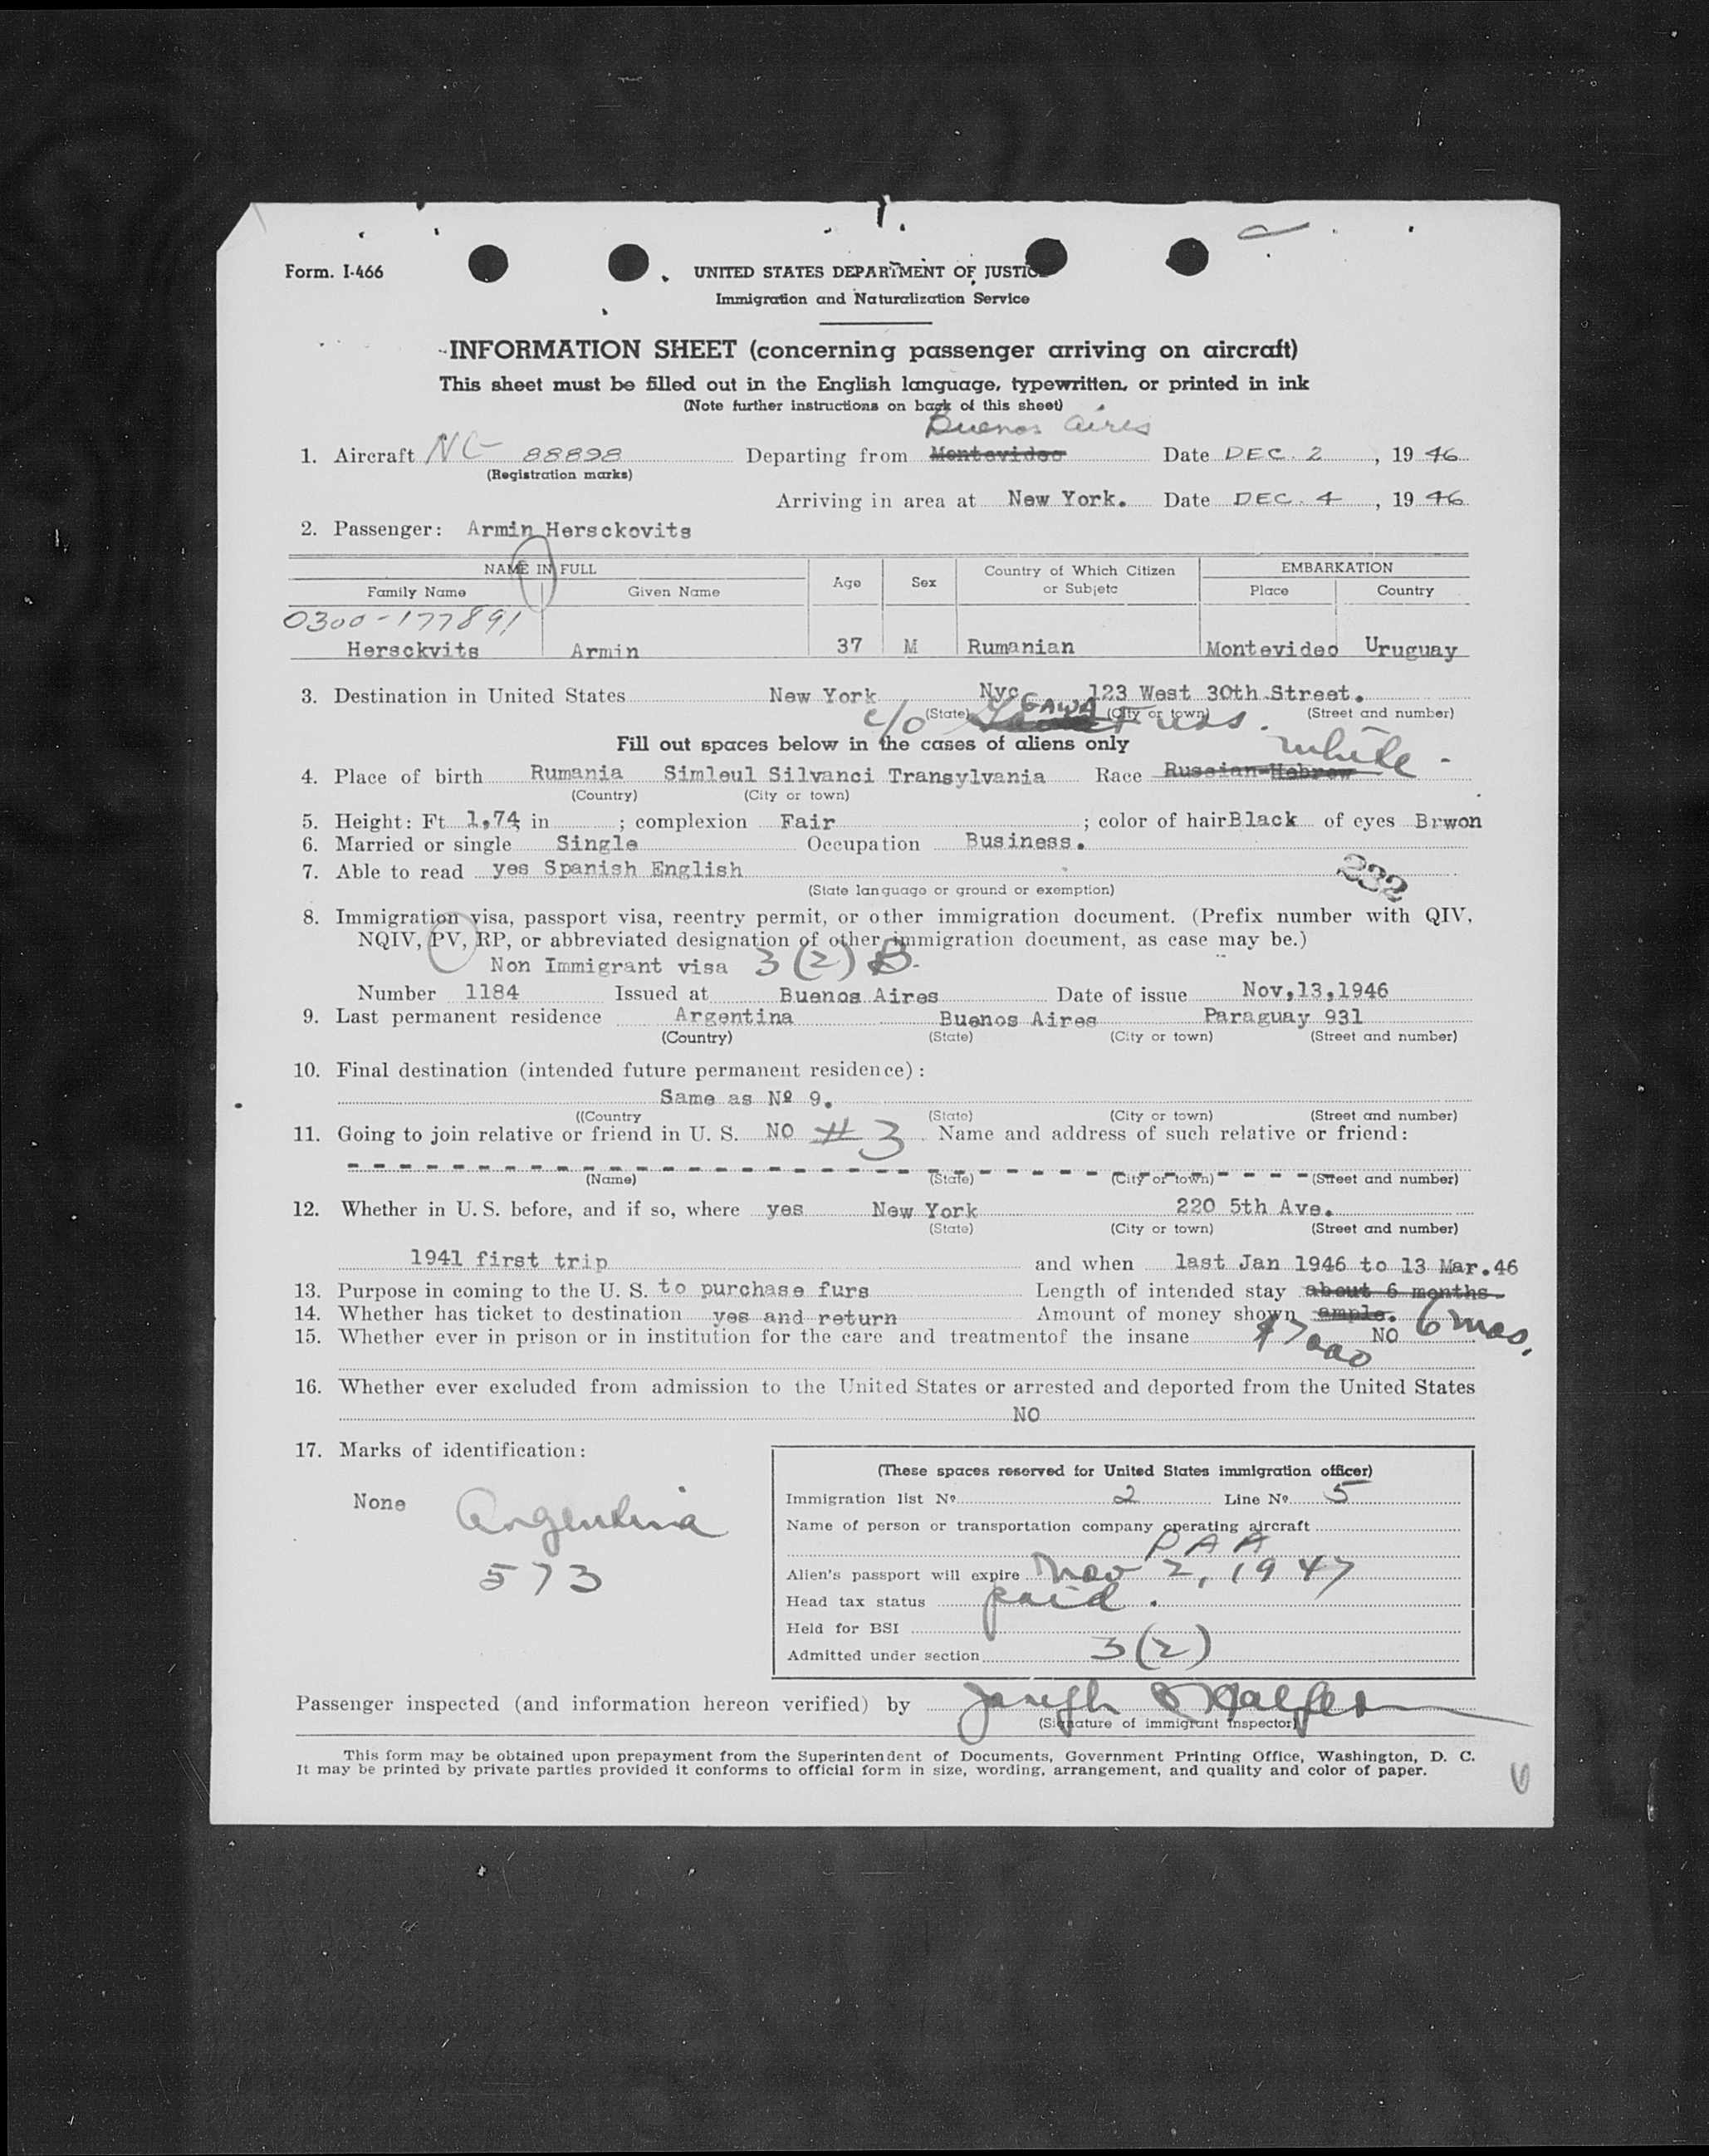 Form. I-466
UNITED STATES DEPARTMENT OF JUSTIC
Immigration and Naturalization Service
INFORMATION SHEET (concerning passenger arriving on aircraft)
This sheet must be filled out in the English language, typewritten, or printed in ink
(Note further instructions on back of this sheet)
Buenos Aires
1. Aircraft NC 88898 Departing from Montevideo Date DEC. 2, 19 46
(Registration marks)
Arriving in area at New York. Date DEC. 4, 19 46
2. Passenger: Armin Hersckovits
NAME IN FULL Age Sex Country of Which Citizen or Subjetc EMBARKATION
Family Name Given Name Place Country
0300-177891
Hersckvits Armin 37 M Rumanian Montevideo Uruguay
3. Destination in United States New York Nyc 123 West 30th Street.
(State) (City or town) (Street and number)
c/o GAWA Furs.
Fill out spaces below in the cases of aliens only
white -
4. Place of birth Rumania Simleul Silvanci Transylvania Race Russian-Hebrew
(Country) (City or town)
5. Height: Ft 1,74 in ; complexion Fair ; color of hair Black of eyes Brwon
6. Married or single Single Occupation Business.
7. Able to read yes Spanish English
232
(State language or ground or exemption)
8. Immigration visa, passport visa, reentry permit, or other immigration document. (Prefix number with QIV,
NQIV, PV, RP, or abbreviated designation of other immigration document, as case may be.)
Non Immigrant visa 3 (2) B-
Number 1184 Issued at Buenos Aires Date of issue Nov,13,1946
9. Last permanent residence Argentina Buenos Aires Paraguay 931
(Country) (State) (City or town) (Street and number)
10. Final destination (intended future permanent residence):
Same as Nº 9.
((Country (State) (City or town) (Street and number)
11. Going to join relative or friend in U. S. NO # 3 Name and address of such relative or friend:
(Name) (State) (City or town) (Street and number)
12. Whether in U. S. before, and if so, where yes New York 220 5th Ave.
(State) (City or town) (Street and number)
1941 first trip and when last Jan 1946 to 13 Mar.46
13. Purpose in coming to the U. S. to purchase furs Length of intended stay about 6 months.
14. Whether has ticket to destination yes and return Amount of money shown ample. 6 mos.
15. Whether ever in prison or in institution for the care and treatmentof the insane NO
$7000
16. Whether ever excluded from admission to the United States or arrested and deported from the United States
NO
17. Marks of identification:
None
Argentina
573
(These spaces reserved for United States immigration officer)
Immigration list Nº 2 Line Nº 5
Name of person or transportation company operating aircraft
PAA
Alien's passport will expire Nov 2, 1947
Head tax status paid.
Held for BSI
Admitted under section 3(2)
Passenger inspected (and information hereon verified) by Joseph
(Signature of immigrant inspector)
This form may be obtained upon prepayment from the Superintendent of Documents, Government Printing Office, Washington, D. C.
It may be printed by private parties provided it conforms to official form in size, wording, arrangement, and quality and color of paper.